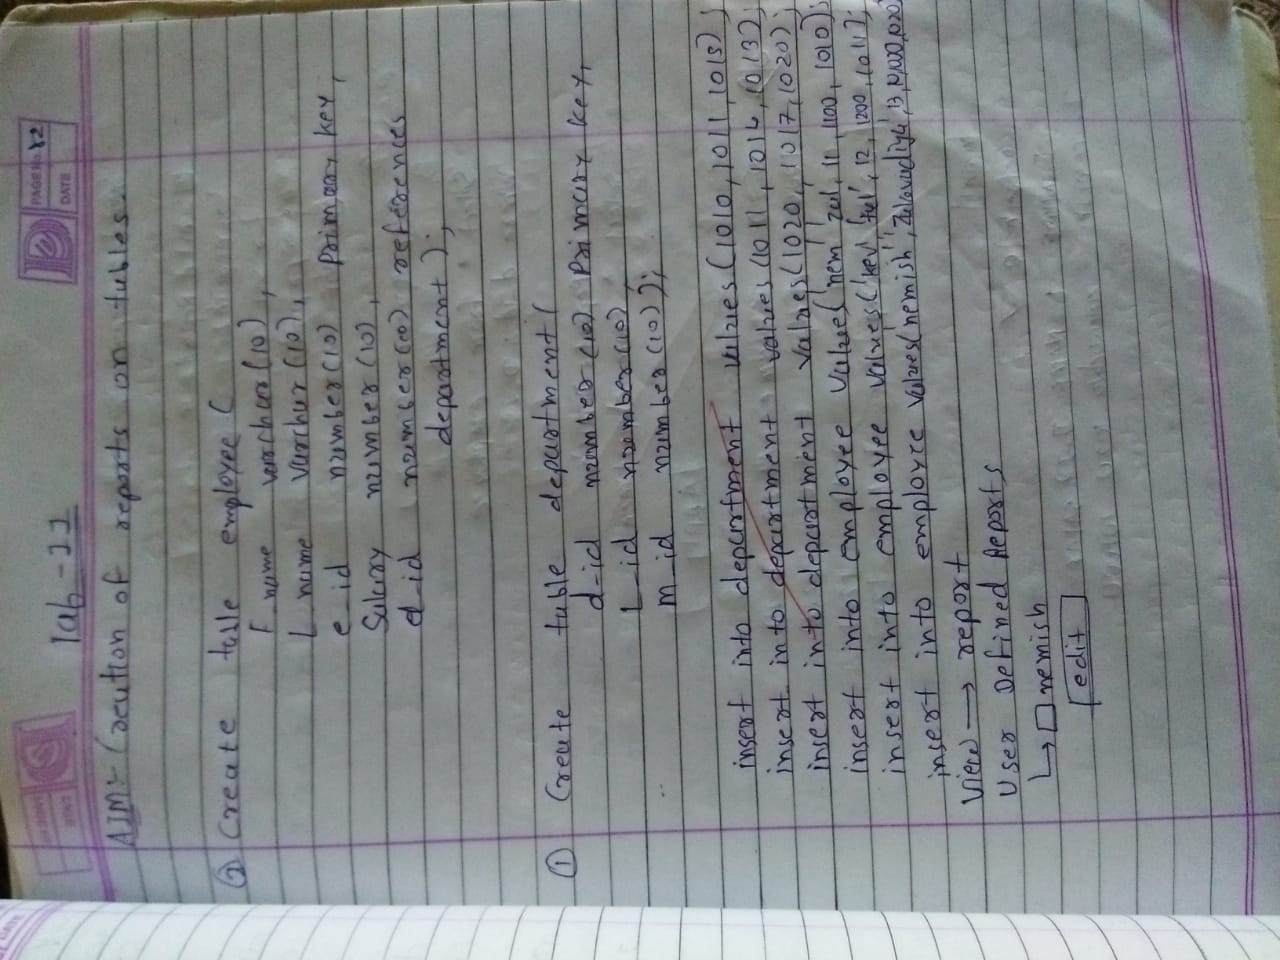 PAGE No. 22
DATE
lab-11
AIM:- Creation of reports on tables.
② Create table employee (
F_name varchar(10),
L_name varchar(10),
e_id number(10) primary key,
Salary number(10),
d_id number(10) references
department);
① Create table department(
d_id number(10) Primary key,
L_id number(10),
m_id number(10));
insert into department values(1010, 1011, 1013);
insert into department values(1011, 1016, 1013);
insert into department values(1020, 1017, 1020);
insert into employee values('nem', 'zel', 11, 1100, 1010);
insert into employee values('kev', 'zel', 12, 1200, 1011);
insert into employee values('nemish', 13, 1020)
View → report
User Defined Reports
↳ □ nemish
edit